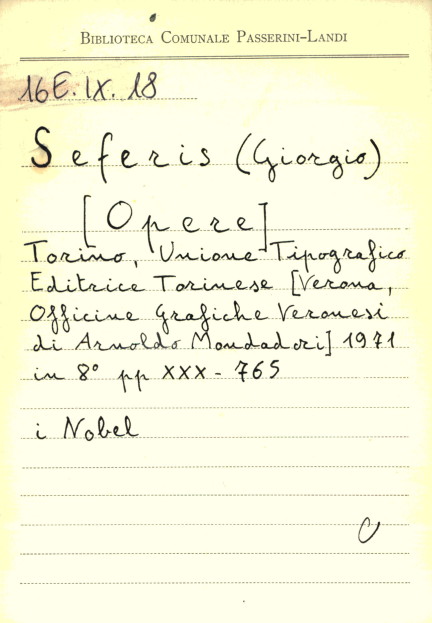 BIBLIOTECA COMUNALE PASSERINI-LANDI
16E.IX.18
Seferis (Giorgio)
[Opere]
Torino, Unione Tipografico
Editrice Torinese [Verona,
Officine Grafiche Veronesi
di Arnoldo Mondadori] 1971
in 8° pp XXX - 765
i Nobel